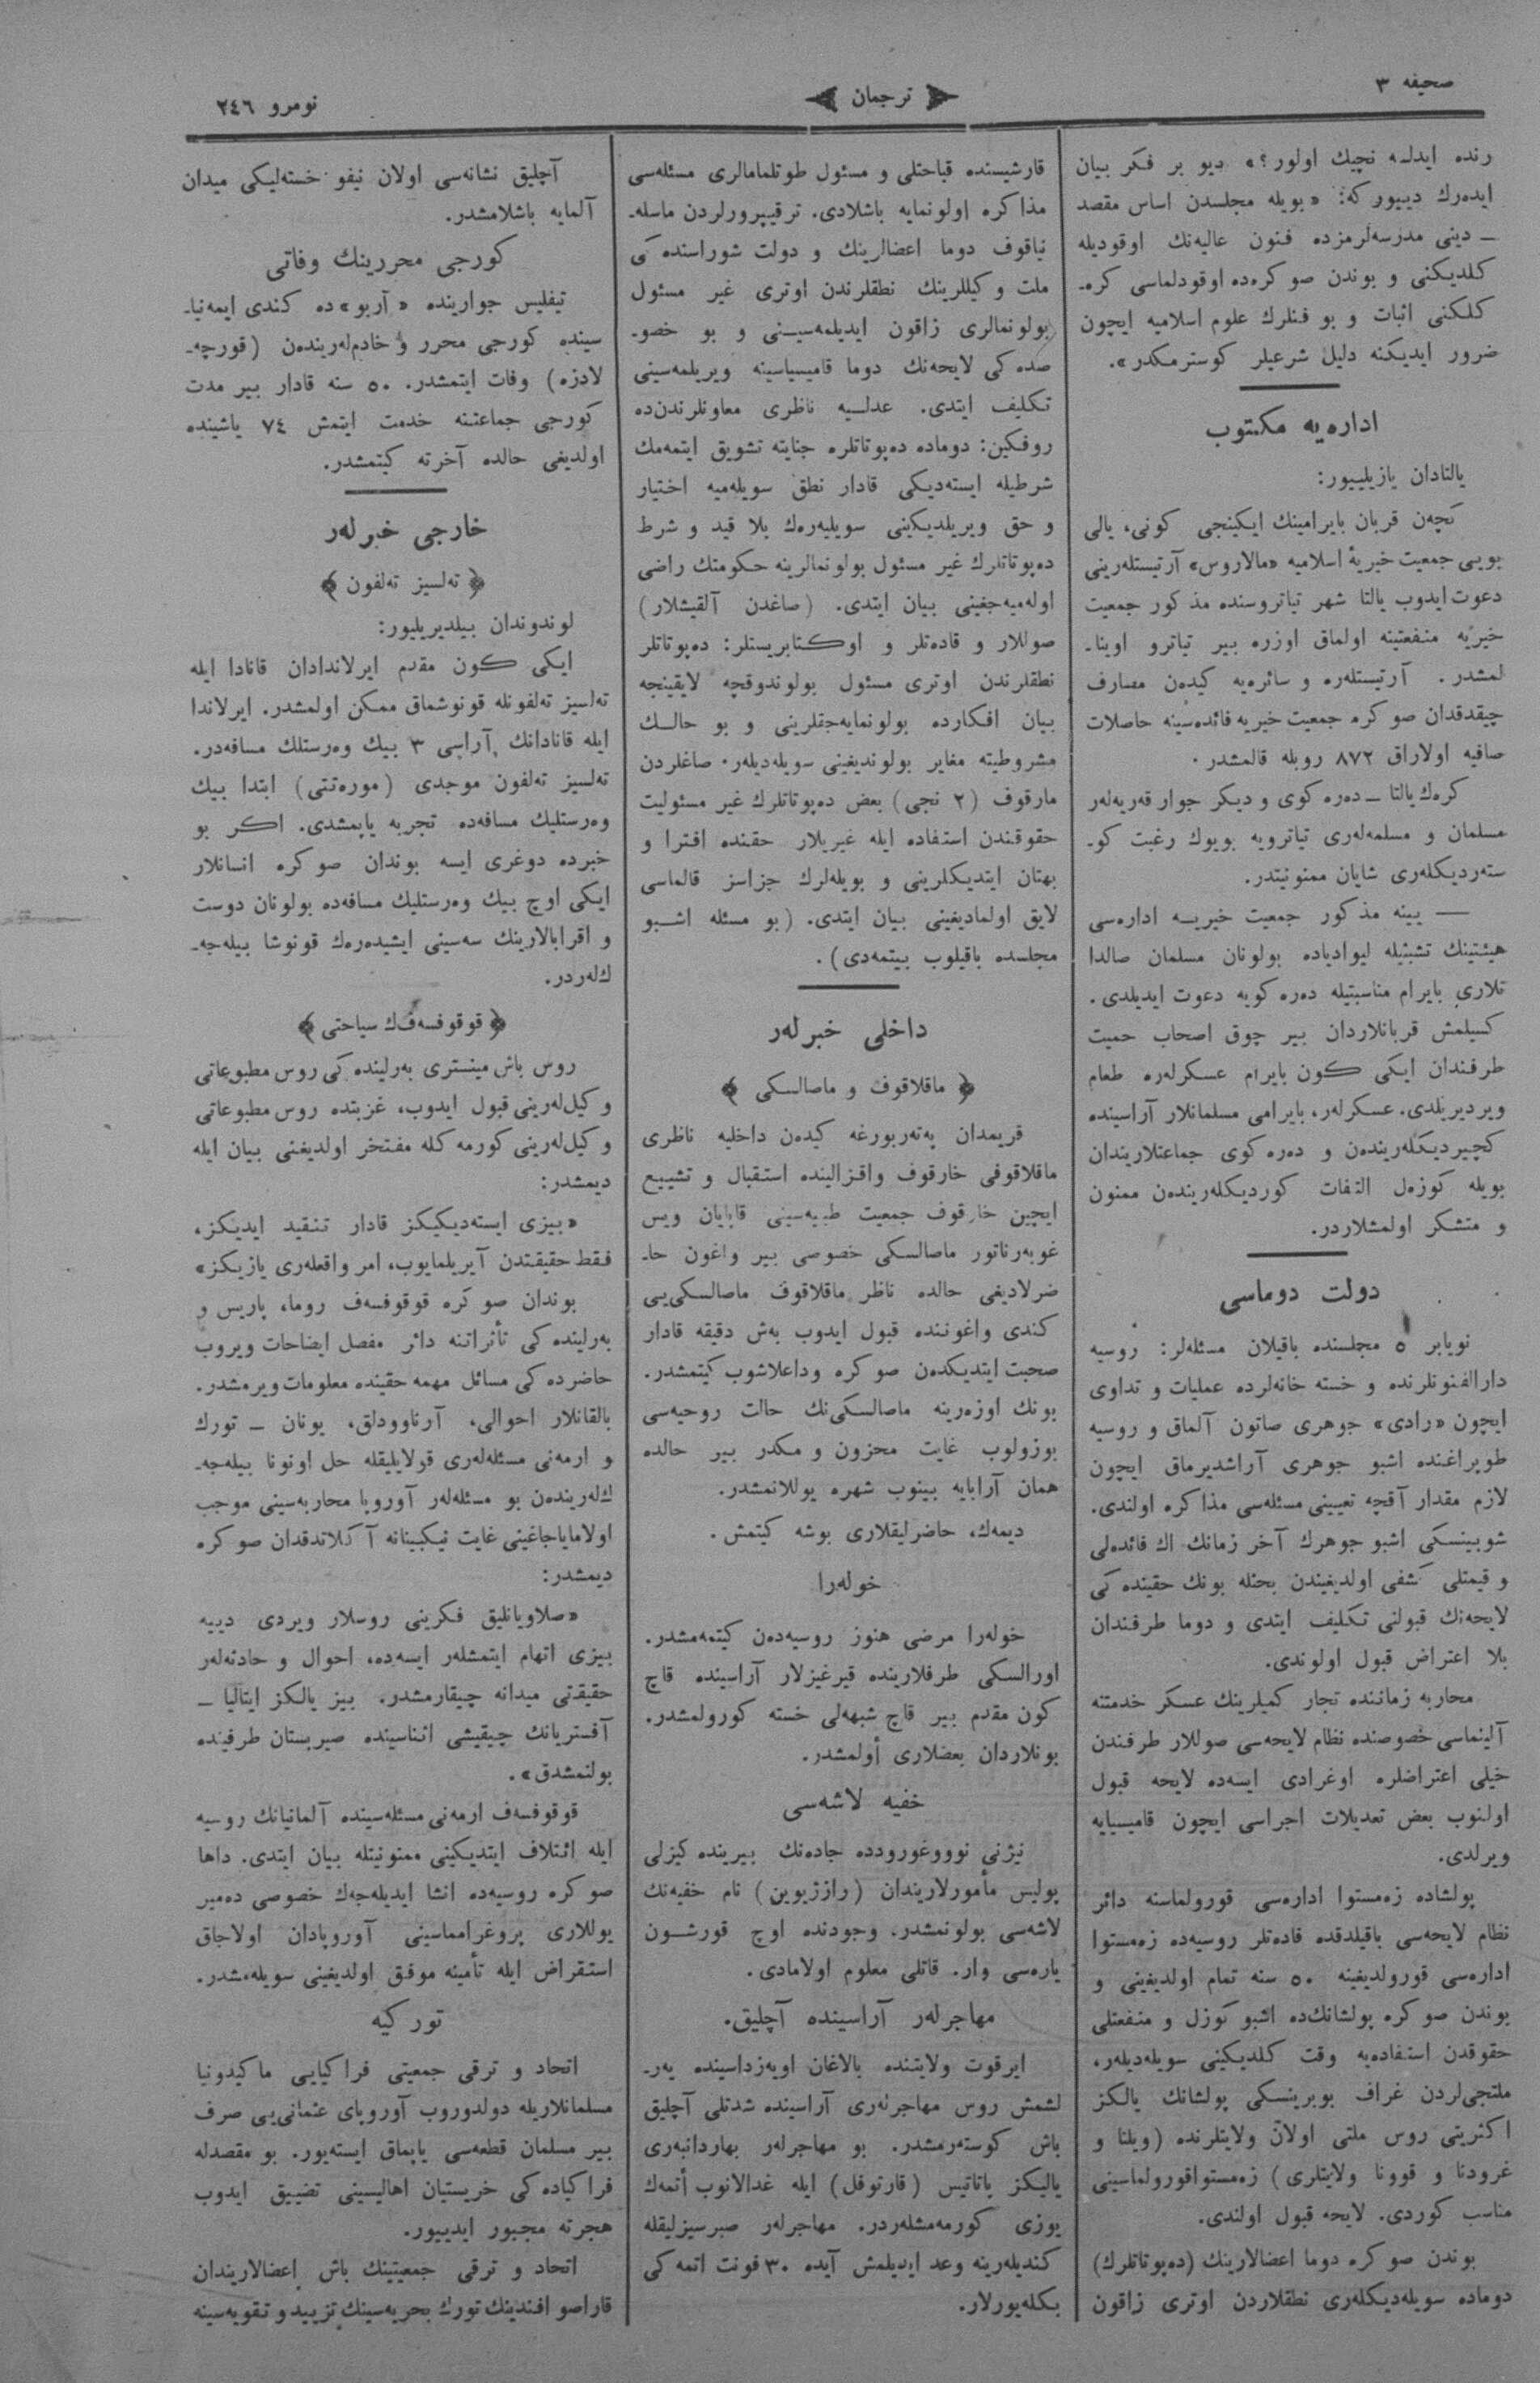 صحيفه ٣
ترجمان
نومرو ٢٤٦
رنده ايدلـه نچيك اولور؟» ديو بر فكر بيان
ايده‌رك دييور كه: «بويله مجلسدن اساس مقصد
ـ دينى مدرسه‌لرمزده فنون عاليه‌نك اوقوديله
كلديكنى و بوندن صو كره‌ده اوقودلماسى كره‌ـ
كلكنى اثبات و بو فنلرك علوم اسلاميه ايچون
ضرور ايديكنه دليل شرعيلر كوسترمكدر».
اداره‌يه مكتوب
يالتادان يازيلييور:
كچه‌ن قربان بايرامينك ايكينجى كونى، يالى
بويى جمعيت خيريۀ اسلاميه «مالاروس» آرتيستله‌رينى
دعوت ايدوب يالتا شهر تياتروسنده مذكور جمعيت
خيريه منفعتينه اولماق اوزره بير تياترو اوينا‌ـ
لمشدر. آرتيستله‌ره و سائره‌يه كيده‌ن مصارف
چيقدقدان صو كره جمعيت خيريه فائده‌سينه حاصلات
صافيه اولاراق ٨٧٢ روبله قالمشدر.
كره‌ك يالتا ـ دره كوى و ديكر جوار قه‌ريه‌له‌ر
مسلمان و مسلمه‌له‌رى تياترويه بويوك رغبت كو‌ـ
سته‌رديكله‌رى شايان ممنونيتدر.
— يينه مذكور جمعيت خيريـه اداره‌سى
هيئتينك تشبثيله ليوادياده بولونان مسلمان صالدا
تلارى بايرام مناسبتيله دره كويه دعوت ايديلدى.
كسيلمش قربانلاردان بير چوق اصحاب حميت
طرفندان ايكى كون بايرام عسكرله‌ره طعام
ويرديريلدى. عسكرله‌ر، بايرامى مسلمانلار آراسينده
كچيرديكله‌رينده‌ن و دره كوى جماعتلاريندان
بويله كوزه‌ل التفات كورديكله‌رينده‌ن ممنون
و متشكر اولمشلاردر.
دولت دوماسى
نويابر ٥ مجلسنده باقيلان مسئله‌لر: روسيه
دارالفنونلرنده و خسته خانه‌لرده عمليات و تداوى
ايچون «رادى» جوهرى صاتون آلماق و روسيه
طوپراغنده اشبو جوهرى آراشديرماق ايچون
لازم مقدار آقچه تعيينى مسئله‌سى مذاكره اولندى.
شوبينسكى اشبو جوهرك آخر زمانك اك فائده‌لى
و قيمتلى كشفى اولديغيندن بحثله بونك حقينده كى
لايحه‌نك قبولنى تكليف ايتدى و دوما طرفندان
بلا اعتراض قبول اولوندى.
محاربه زماننده تجار كميلرينك عسكر خدمتنه
آلينماسى خصوصنده نظام لايحه‌سى صوللار طرفندن
خيلى اعتراضلره اوغرادى ايسه‌ده لايحه قبول
اولنوب بعض تعديلات اجراسى ايچون قاميسيايه
ويرلدى.
پولشاده زه‌مستوا اداره‌سى قورولماسنه دائر
نظام لايحه‌سى باقيلدقده قاده‌تلر روسيه‌ده زه‌مستوا
اداره‌سى قورولديغينه ٥٠ سنه تمام اولديغينى و
بوندن صو كره پولشانك‌ده اشبو كوزل و منفعتلى
حقوقدن استفاده‌يه وقت كلديكينى سويله‌ديله‌ر،
ملتجى‌لردن غراف بوبرينسكى پولشانك يالكز
اكثريتى روس ملتى اولان ولايتلرنده (ويلنا و
غرودنا و قوونا ولايتلرى) زه‌مستوا قورولماسينى
مناسب كوردى. لايحه قبول اولندى.
بوندن صو كره دوما اعضالارينك (ده‌پوتاتلرك)
دوماده سويله‌ديكله‌رى نطقلاردن اوترى زاقون
قارشيسنده قباحتلى و مسئول طوتلمامالرى مسئله‌سى
مذاكره اولونمايه باشلادى. ترقيپرورلردن ماسله‌ـ
نياقوف دوما اعضالرينك و دولت شوراسنده كى
ملت وكيللرينك نطقلرندن اوترى غير مسئول
بولونمالرى زاقون ايديلمه‌سيـنى و بو خصو‌ـ
صده كى لايحه‌نك دوما قاميسياسينه ويريلمه‌سينى
تكليف ايتدى. عدلـيه ناظرى معاونلرندن‌ده
روفكين: دوماده ده‌پوتاتلره جنايته تشويق ايتمه‌مك
شرطيله ايسته‌ديكى قادار نطق سويله‌ميه اختيار
و حق ويريلديكينى سويليه‌رك بلا قيد و شرط
ده‌پوتاتلرك غير مسئول بولونمالرينه حكومتك راضى
اوله‌ميه‌جغينى بيان ايتدى. (صاغدن آلقيشلار)
صوللار و قاده‌تلر و اوكـتابريستلر: ده‌پوتاتلر
نطقلرندن اوترى مسئول بولوندوقچه لايقينجه
بيان افكارده بولونمايه‌جقلرينى و بو حالـك
مشروطيته مغاير بولونديغينى سويله‌ديله‌ر. صاغلردن
مارقوف (٢ نجى) بعض ده‌پوتاتلرك غير مسئوليت
حقوقندن استفاده ايله غيريلار حقنده افترا و
بهتان ايتديكلرينى و بويله‌لرك جزاسز قالماسى
لايق اولماديغينى بيان ايتدى. (بو مسئله اشـبو
مجلسده باقيلوب بيتمه‌دى).
داخلى خبرله‌ر
﴿ ماقلاقوف و ماصالسكى ﴾
قريمدان په‌ته‌ربورغه كيده‌ن داخليه ناظرى
ماقلاقوفى خارقوف واقزالينده استقبال و تشييع
ايچين خارقوف جمعيت طبيه‌سينى قابايان ويس
غوبه‌رناتور ماصالسكى خصوصى بير واغون حا‌ـ
ضرلاديغى حالده ناظر ماقلاقوف ماصالسكى‌يى
كندى واغوننده قبول ايدوب به‌ش دقيقه قادار
صحبت ايتديكده‌ن صو كره وداعلاشوب كيتمشدر.
بونك اوزه‌رينه ماصالسكى‌نك حالت روحيه‌سى
بوزولوب غايت محزون و مكدر بير حالده
همان آرابايه بينوب شهره يوللانمشدر.
ديمه‌ك، حاضرليقلارى بوشه كيتمش.
خوله‌را
خوله‌را مرضى هنوز روسيه‌ده‌ن كيتمه‌مشدر.
اورالسكى طرفلارينده قيرغيزلار آراسينده قاچ
كون مقدم بير قاچ شبهه‌لى خسته كورولمشدر.
بونلاردان بعضلارى أولمشدر.
خفيه لاشه‌سى
نيژنى نوووغورودده جاده‌نك بيرينده كيزلى
پوليس مأمورلاريندان (رازژيوين) نام خفيه‌نك
لاشه‌سى بولونمشدر. وجودنده اوچ قورشـون
ياره‌سى وار. قاتلى معلوم اولامادى.
مهاجرله‌ر آراسينده آچليق.
ايرقوت ولايتنده بالاغان اويه‌زداسينده يه‌ر‌ـ
لشمش روس مهاجرله‌رى آراسينده شدتلى آچليق
باش كوسته‌رمشدر. بو مهاجرله‌ر بهاردانبه‌رى
يالـيكز پاتاتيس (قارتوفل) ايله غدالانوب أتمه‌ك
يوزى كورمه‌مشله‌ردر. مهاجرله‌ر صبرسيزليقله
كنديله‌رينه وعد ايديلمش آيده ٣٠ فونت اتمه كى
بكله‌يورلار.
آچليق نشانه‌سى اولان تيفو خسته‌ليكى ميدان
آلمايه باشلامشدر.
كورجى محررينك وفاتى
تيفليس جوارينده «آربو» ده كندى ايمه‌نيا‌ـ
سينده كورجى محرر و خادم‌له‌رينده‌ن (قورچه‌ـ
لادزه) وفات ايتمشدر. ٥٠ سنه قادار بير مدت
كورجى جماعتنه خدمت ايتمش ٧٤ ياشينده
اولديغى حالده آخرته كيتمشدر.
خارجى خبرله‌ر
﴿ ته‌لسيز ته‌لفون ﴾
لوندوندان بيلديريليور:
ايكى كون مقدم ايرلاندادان قانادا ايله
ته‌لسيز ته‌لفونله قونوشماق ممكن اولمشدر. ايرلاندا
ايله قانادانك آراسى ٣ بيك وه‌رستلك مسافه‌در.
ته‌لسيز ته‌لفون موجدى (موره‌تتى) ابتدا بيك
وه‌رستليك مسافه‌ده تجربه ياپمشدى. اكر بو
خبرده دوغرى ايسه بوندان صو كره انسانلار
ايكى اوچ بيك وه‌رستليك مسافه‌ده بولونان دوست
و اقرابالارينك سه‌سينى ايشيده‌ره‌ك قونوشا بيله‌جه‌ـ
ك‌له‌ردر.
﴿ قوقوفسه‌ف‌ك سياحتى ﴾
روس باش مينسترى به‌رلينده كى روس مطبوعاتى
وكيل‌له‌رينى قبول ايدوب، غزبتده روس مطبوعاتى
وكيل‌له‌رينى كورمه كله مفتخر اولديغنى بيان ايله
ديمشدر:
«بيزى ايسته‌ديكيكز قادار تنقيد ايديكز،
فقط حقيقتدن آيريلمايوب، امر واقعله‌رى يازيكز»
بوندان صو كره قوقوفسه‌ف روما، پاريس و
به‌رلينده كى تأثراتنه دائر مفصل ايضاحات ويروب
حاضرده كى مسائل مهمه حقينده معلومات ويرمشدر.
بالقانلار احوالى، آرناوودلق، يونان ـ تورك
و ارمه‌نى مسئله‌له‌رى قولايليقله حل اونونا بيله‌جه‌ـ
ك‌له‌رينده‌ن بو مسئله‌له‌ر آوروپا محاربه‌سينى موجب
اولاماياجاغينى غايت نيكبينانه آكلاتدقدان صو كره
ديمشدر:
«صلاويانليق فكرينى روسلار ويردى دييه
بيزى اتهام ايتمشله‌ر ايسه‌ده، احوال و حادثه‌له‌ر
حقيقتى ميدانه چيقارمشدر. بيز يالكز ايتاليا ـ
آفستريانك چيقيشى اثناسينده صيربستان طرفينده
بولنمشدق».
قوقوفسه‌ف ارمه‌نى مسئله‌سينده آلمانيانك روسيه
ايله ائتلاف ايتديكينى ممنونيتله بيان ايتدى. داها
صو كره روسيه‌ده انشا ايديله‌جه‌ك خصوصى ده‌مير
يوللارى پروغرامماسينى آوروپادان اولاجاق
استقراض ايله تأمينه موفق اولديغينى سويله‌مشدر.
توركيه
اتحاد و ترقى جمعيتى فراكيايى ماكيدونيا
مسلمانلاريله دولدوروب آوروپاى عثمانى‌يى صرف
بير مسلمان قطعه‌سى ياپماق ايسته‌يور. بو مقصدله
فراكياده كى خريستيان اهاليسينى تضييق ايدوب
هجرته مجبور ايدييور.
اتحاد و ترقى جمعيتينك باش اعضالاريندان
قاراصو افندينك تورك بحريه‌سينك تزييد و تقويه‌سينه